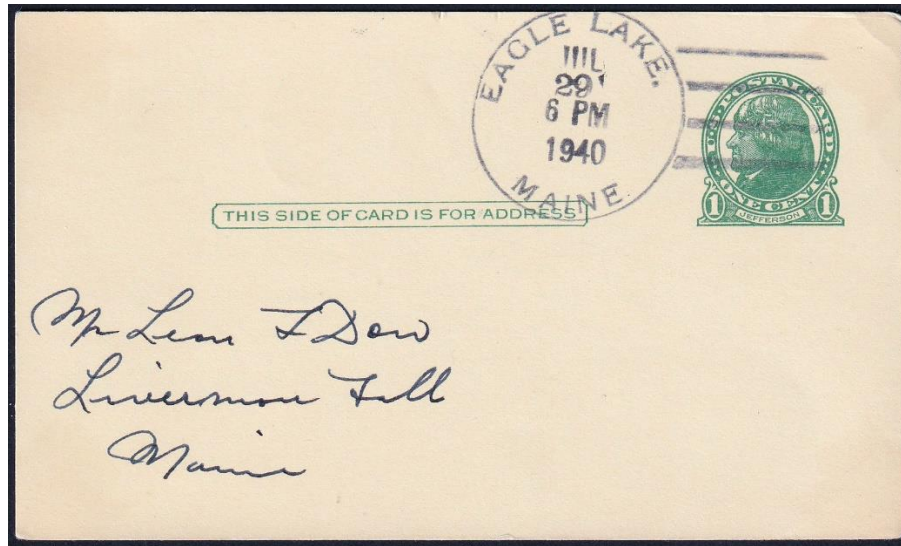 EAGLE LAKE.
JUL
29
6 PM
1940
MAINE
U.S. POSTAL CARD
ONE CENT
1 JEFFERSON 1
THIS SIDE OF CARD IS FOR ADDRESS
Mr Leon F Dow
Livermore Fall
Maine